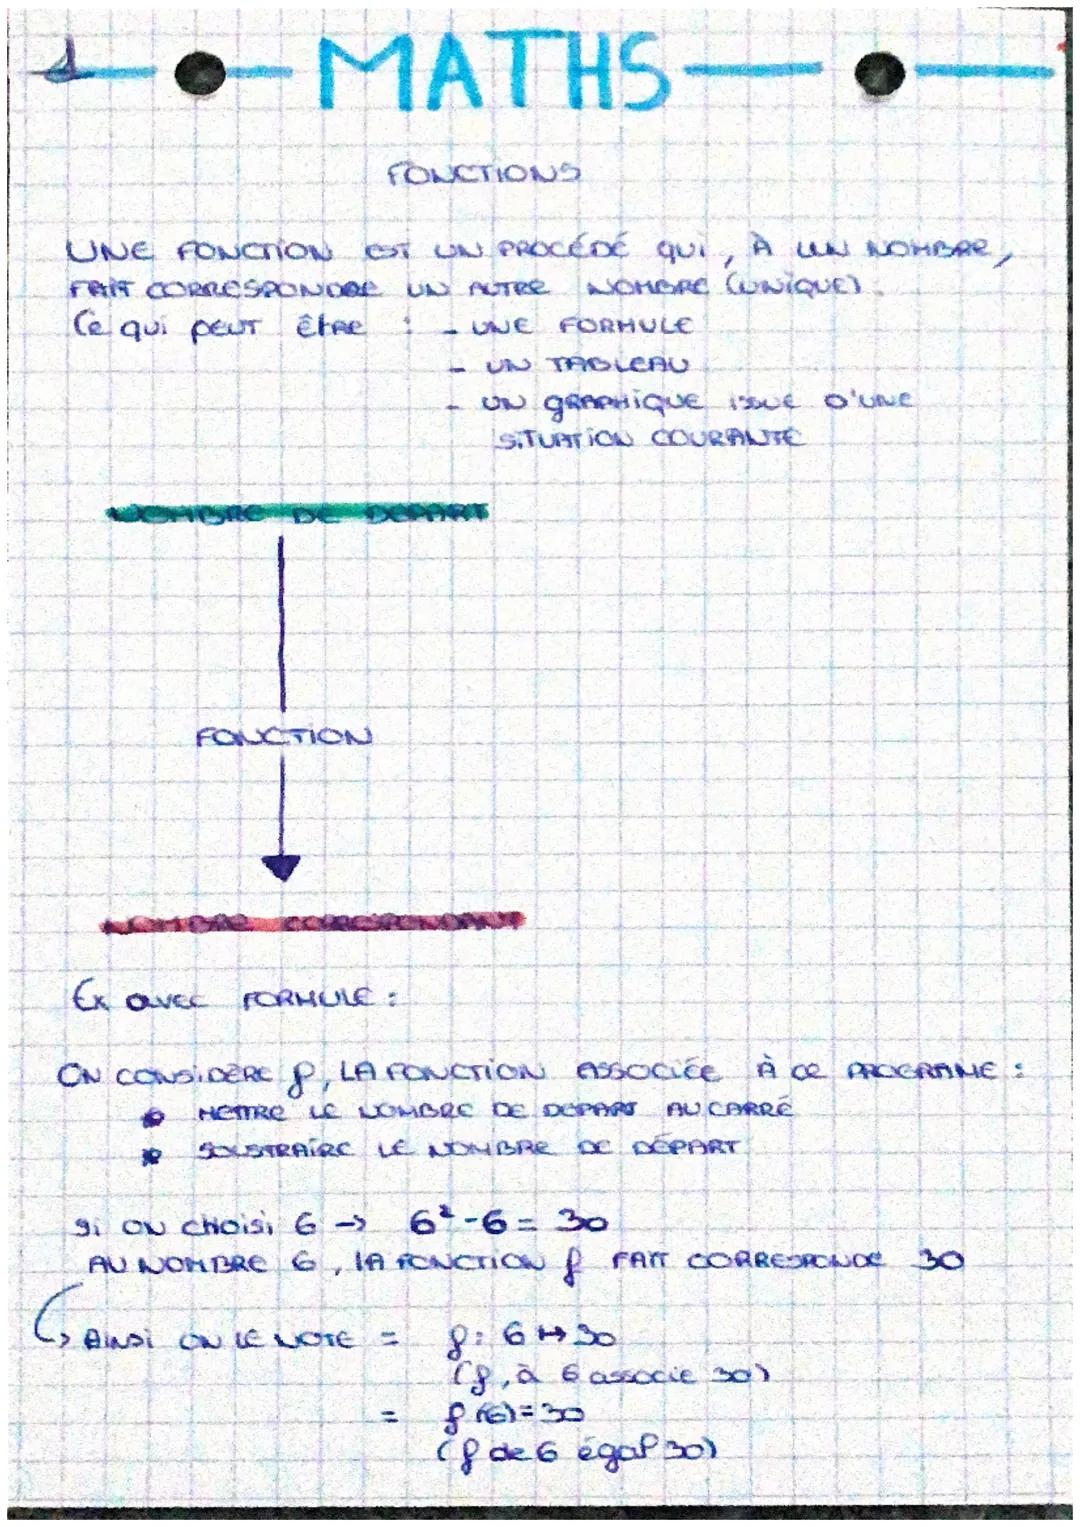 1 MATHS
FONCTIONS
UNE FONCTION EST UN PROCÉDÉ QUI, À UN NOMBRE,
FAIT CORRESPONDRE UN AUTRE NOMBRE (UNIQUE).
Ce qui peut être : - UNE FORMULE
- UN TABLEAU
- UN GRAPHIQUE ISSUE D'UNE
SITUATION COURANTE
NOMBRE DE DEPART
FONCTION
NOMBRE CORRESPONDANT
Ex avec FORMULE :
ON CONSIDERE f, LA FONCTION ASSOCIÉE À CE PROGRAMME :
• METTRE LE NOMBRE DE DEPART AU CARRÉ
• SOUSTRAIRE LE NOMBRE DE DÉPART
Si ON CHOISI 6 → 6² - 6 = 30
AU NOMBRE 6, LA FONCTION f FAIT CORRESPONDE 30
↳ AINSI ON LE NOTE = f : 6 ↦ 30
(f, à 6 associe 30)
= f(6) = 30
(f de 6 égal 30)